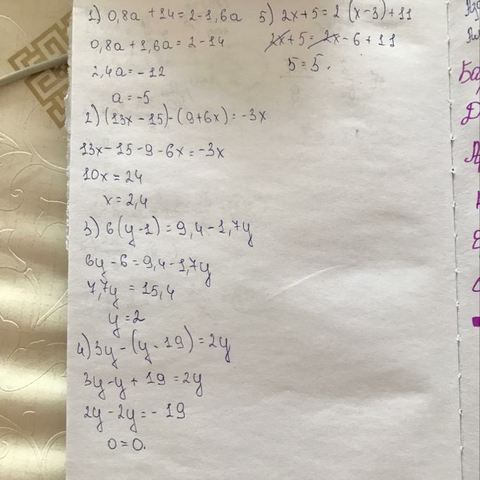 1) 0,8a + 14 = 2 - 1,6a
0,8a + 1,6a = 2 - 14
2,4a = -12
a = -5
2) (13x - 15) - (9 + 6x) = -3x
13x - 15 - 9 - 6x = -3x
10x = 24
x = 2,4
3) 6(y - 1) = 9,4 - 1,7y
6y - 6 = 9,4 - 1,7y
7,7y = 15,4
y = 2
4) 3y - (y - 19) = 2y
3y - y + 19 = 2y
2y - 2y = - 19
0 = 0.
5) 2x + 5 = 2 (x - 3) + 11
2x + 5 = 2x - 6 + 11
5 = 5.